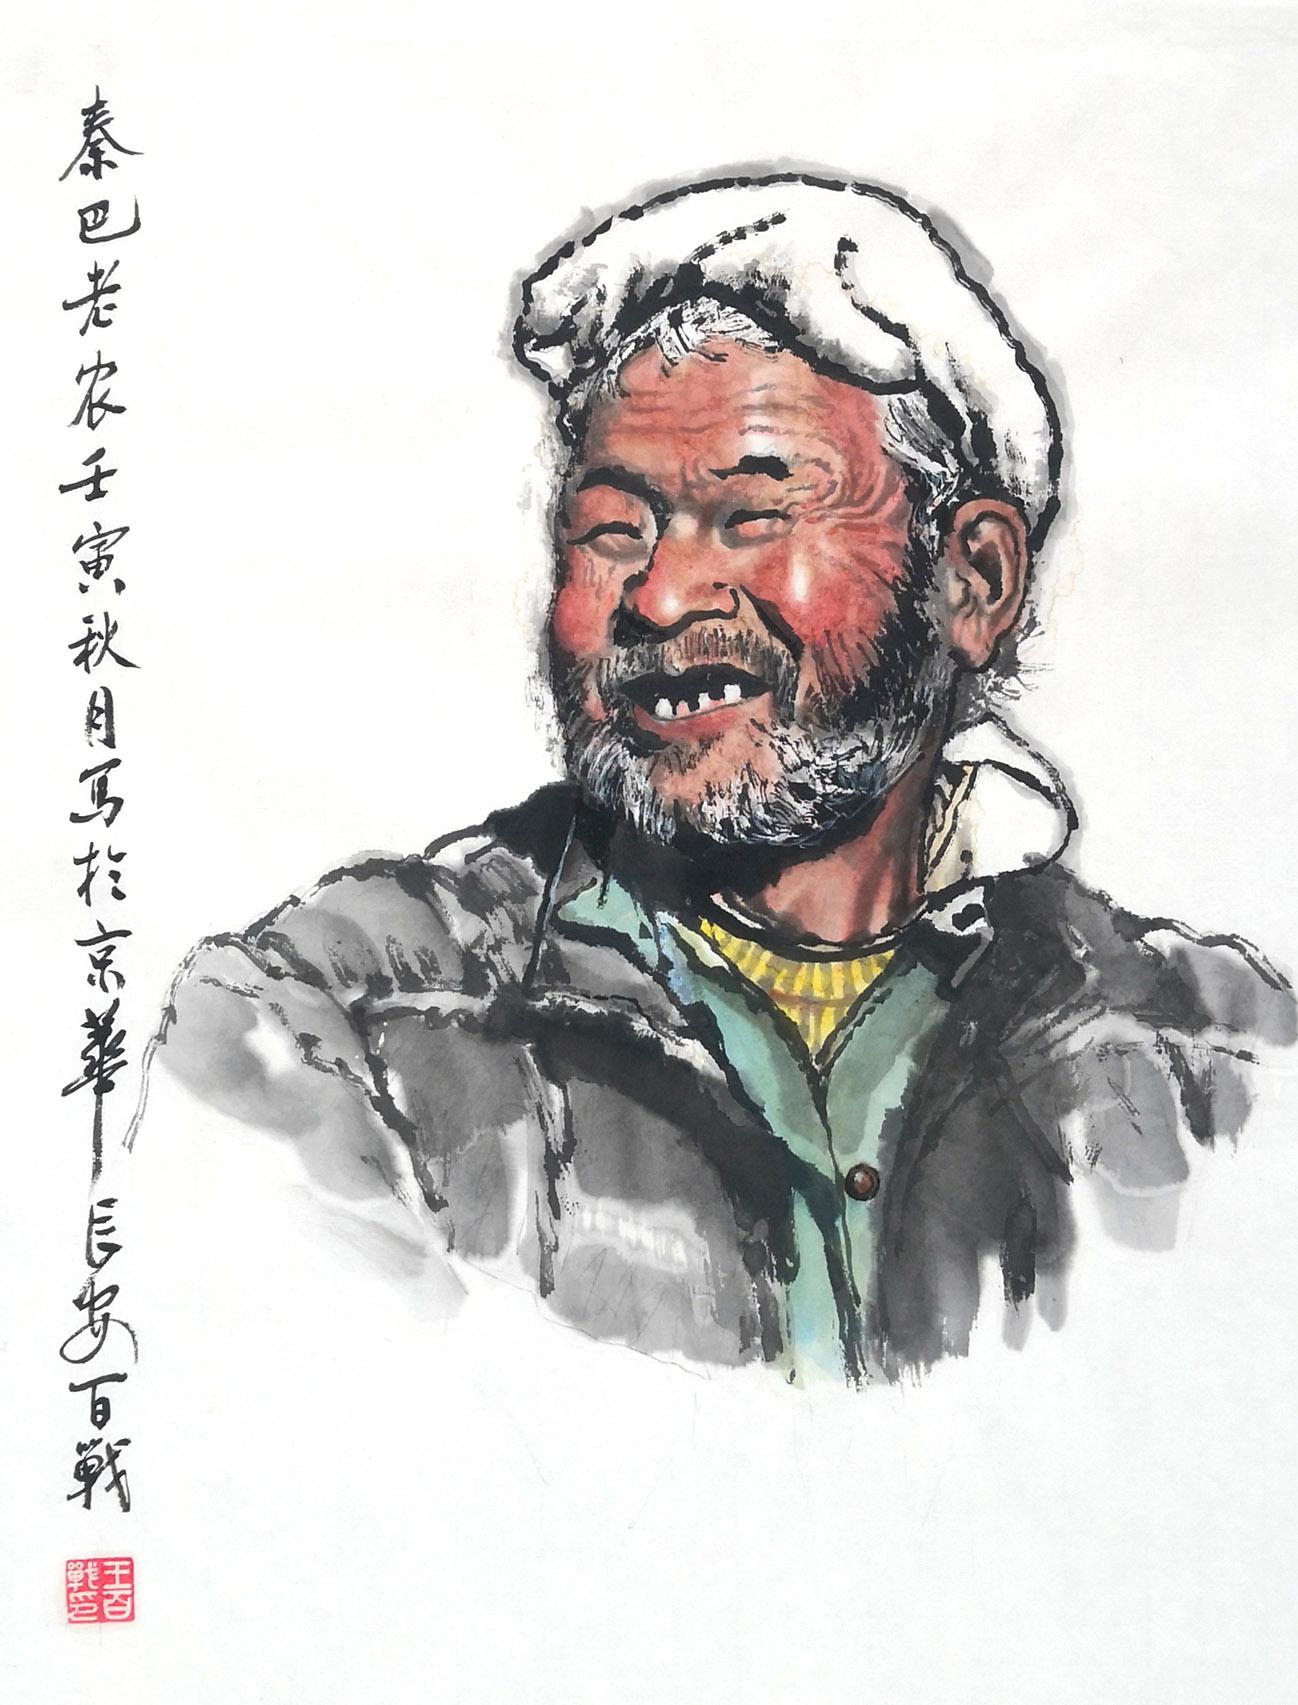 秦巴老农壬寅秋月写於京華长安百戰
王百戰印